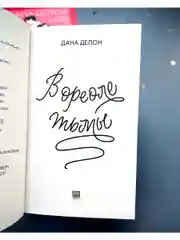 ДАНА ДЕЛОН
В ореоле
тьмы